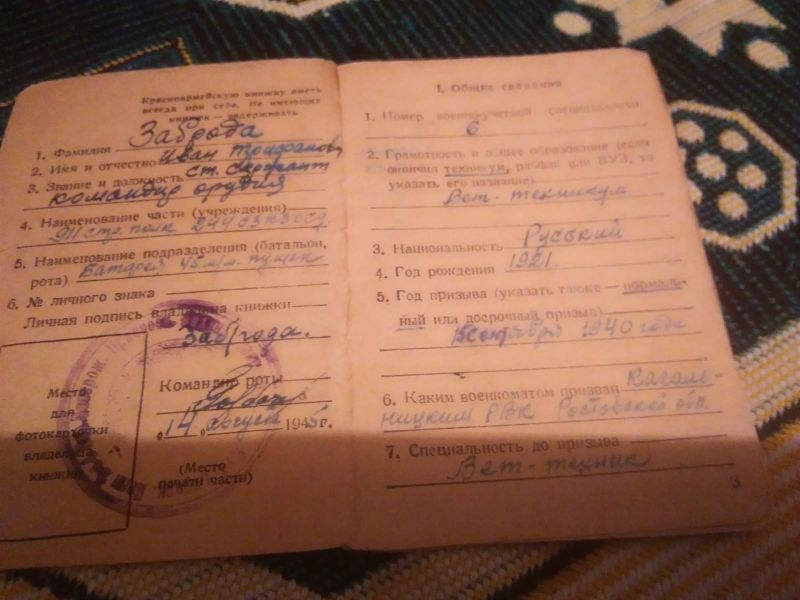 Красноармейскую книжку иметь
всегда при себе. Не имеющих
книжек — задерживать
1. Фамилия Заброда
2. Имя и отчество Иван Трифанов
3. Звание и должность ст. сержант
командир орудия
4. Наименование части (учреждения)
911 стр. полк 244
5. Наименование подразделения (батальон,
рота) Батарея 45 м/м. пушек
6. № личного знака
Личная подпись владельца книжки
Заброда.
Место
для
фотокарточки
владельца
книжки
Командир роты
„14„ августа 1945 г.
(Место
печати части)
I. Общие сведения
1. Номер военно-учетной специальности
6
2. Грамотность и общее образование (если
окончил техникум, рабфак или ВУЗ, то
указать его название)
Вет. техникум
3. Национальность Руський
4. Год рождения 1921.
5. Год призыва (указать также — нормаль-
ный или досрочный призыв)
сентября 1940 года
6. Каким военкоматом призван Кагаль-
ницким РВК Ростовской обл.
7. Специальность до призыва
Вет-техник
3